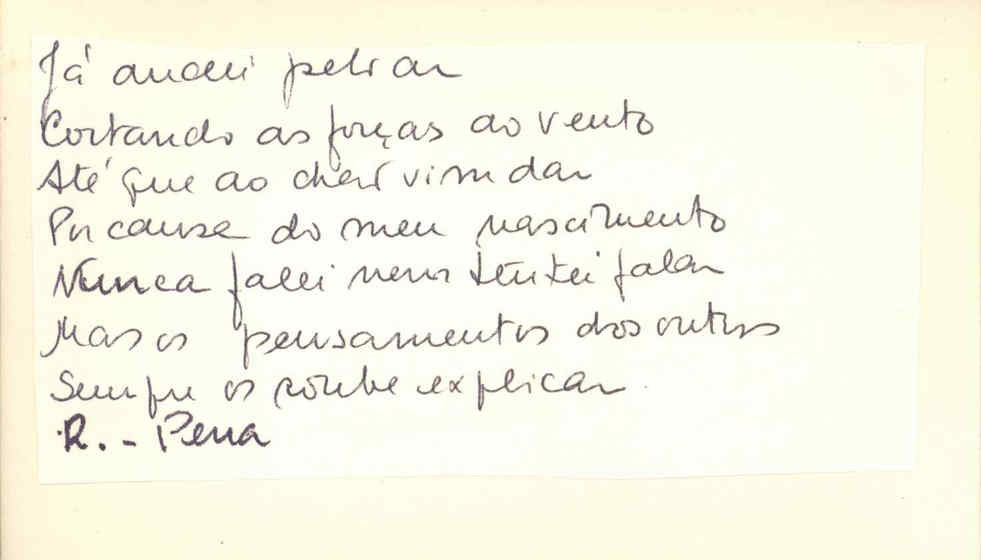 Já andei pelo ar
Cortando as forças ao vento
Até que ao chão vim dar
Por causa do meu nascimento
Nunca falei nem tentei falar
Mas os pensamentos dos outros
Sempre os soube explicar.
R. - Pena